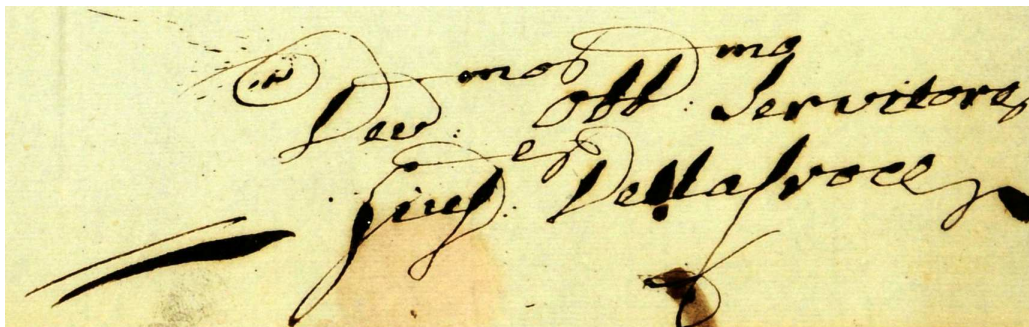 Dev:mo Obb:mo Servitore
Gius:e DellaCroce